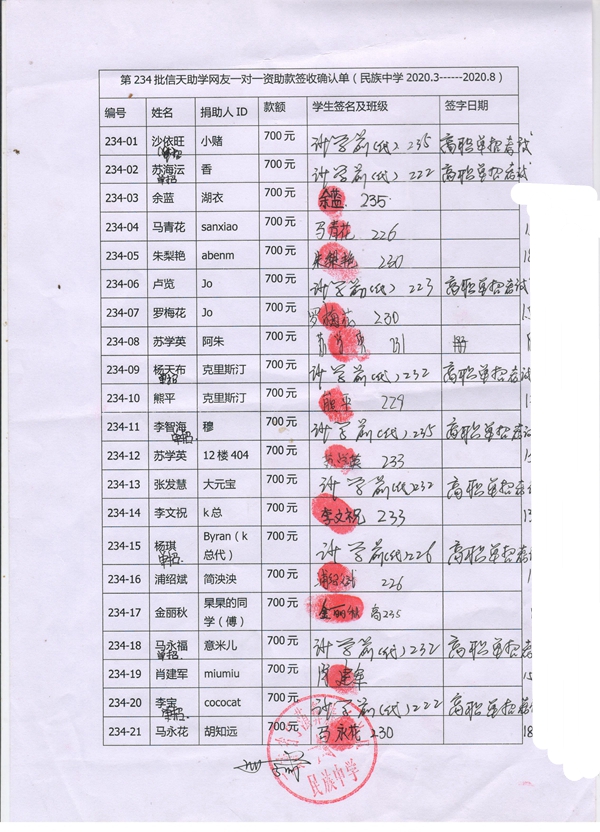 第234批信天助学网友一对一资助款签收确认单（民族中学2020.3------2020.8）
编号 姓名 捐助人ID 款额 学生签名及班级 签字日期
234-01 沙依旺 小赌 700元 (代) 235 高职单招考试
单招
234-02 苏海沄 香 700元 (代) 222 高职单招考试
单招
234-03 余蓝 湖衣 700元 余蓝 235
234-04 马青花 sanxiao 700元 马青花 226
234-05 朱梨艳 abenm 700元 朱梨艳 230
234-06 卢览 Jo 700元 (代) 223 高职单招考试
234-07 罗梅花 Jo 700元 罗梅花 230
234-08 苏学英 阿朱 700元
234-09 杨天布 克里斯汀 700元 (代) 232 高职单招考试
单招
234-10 熊平 克里斯汀 700元 熊平 229
234-11 李智海 穆 700元 (代) 235 高职单招考试
单招
234-12 苏学英 12楼404 700元 苏学英 233
234-13 张发慧 大元宝 700元 (代) 232 高职单招考试
234-14 李文祝 k总 700元 李文祝 233
234-15 杨琪 Byran（k总代） 700元 (代) 226 高职单招考试
单招
234-16 浦绍斌 简泱泱 700元 浦绍斌 226
234-17 金丽秋 杲杲的同学（傅） 700元 金丽秋 高235
234-18 马永福 意米儿 700元 (代) 232 高职单招考试
单招
234-19 肖建军 miumiu 700元 肖建军
234-20 李宝 cococat 700元 (代) 222 高职单招考试
单招
234-21 马永花 胡知远 700元 马永花 230
民族中学